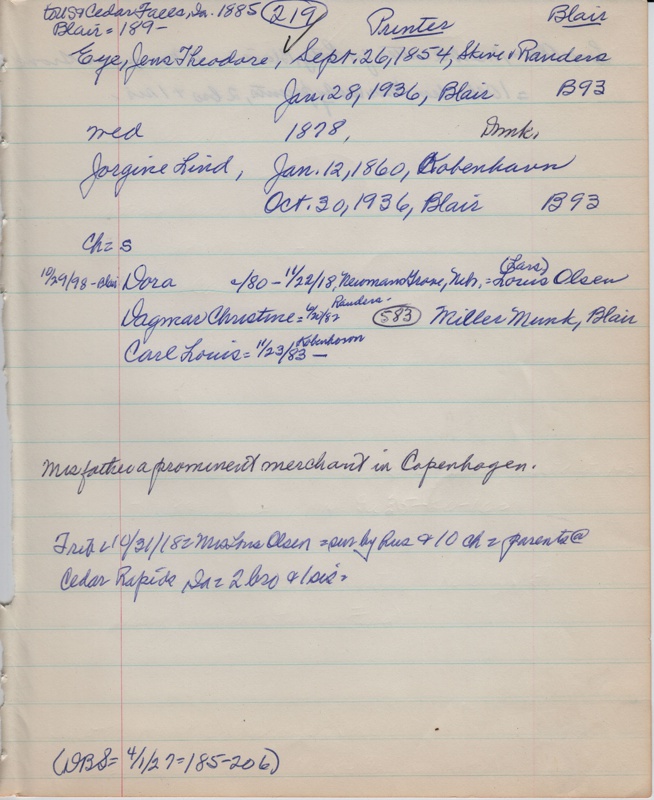 to US & Cedar Falls, Ia. 1885 219 Printer Blair
Blair = 189-
Eye, Jens Theodore, Sept. 26, 1854, Skive, Randers
Jan. 28, 1936, Blair B93
med 1878, Dmk.
Jorgine Lind, Jan. 12, 1860, Kobenhavn
Oct. 30, 1936, Blair B93
Ch = s
10/29/98 - Blair Dora -/80 - 11/22/18, Newman Grove, Neb. = (Lars) Louis Olsen
Dagmar Christine = Randers - 583 Miller Munk, Blair
Carl Louis = 11/23/83 - Kobenhavn
Mrs father a prominent merchant in Copenhagen.
Trib - 10/31/18 = Mrs Lars Olsen = sur by hus & 10 ch = parents @
Cedar Rapids, Ia = 2 bro & 1 sis =
(DBS = 4/1/27 = 185-206)